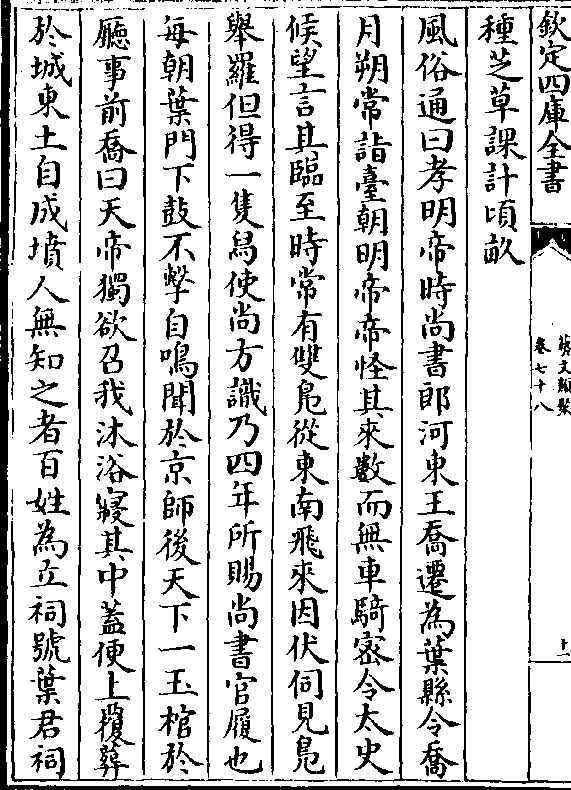 欽定四庫全書
藝文類聚
卷七十八
十二
種芝草課計頃畝
風俗通曰孝明帝時尚書郎河東王喬遷為葉縣令喬
月朔常詣臺朝明帝帝怪其來數而無車騎密令太史
候望言其臨至時常有雙鳧從東南飛來因伏伺見鳧
舉羅但得一隻舄使尚方識乃四年所賜尚書官履也
每朝葉門下鼓不擊自鳴聞於京師後天下一玉棺於
廳事前喬曰天帝獨欲召我沐浴寢其中蓋便上覆葬
於城東土自成墳人無知之者百姓為立祠號葉君祠